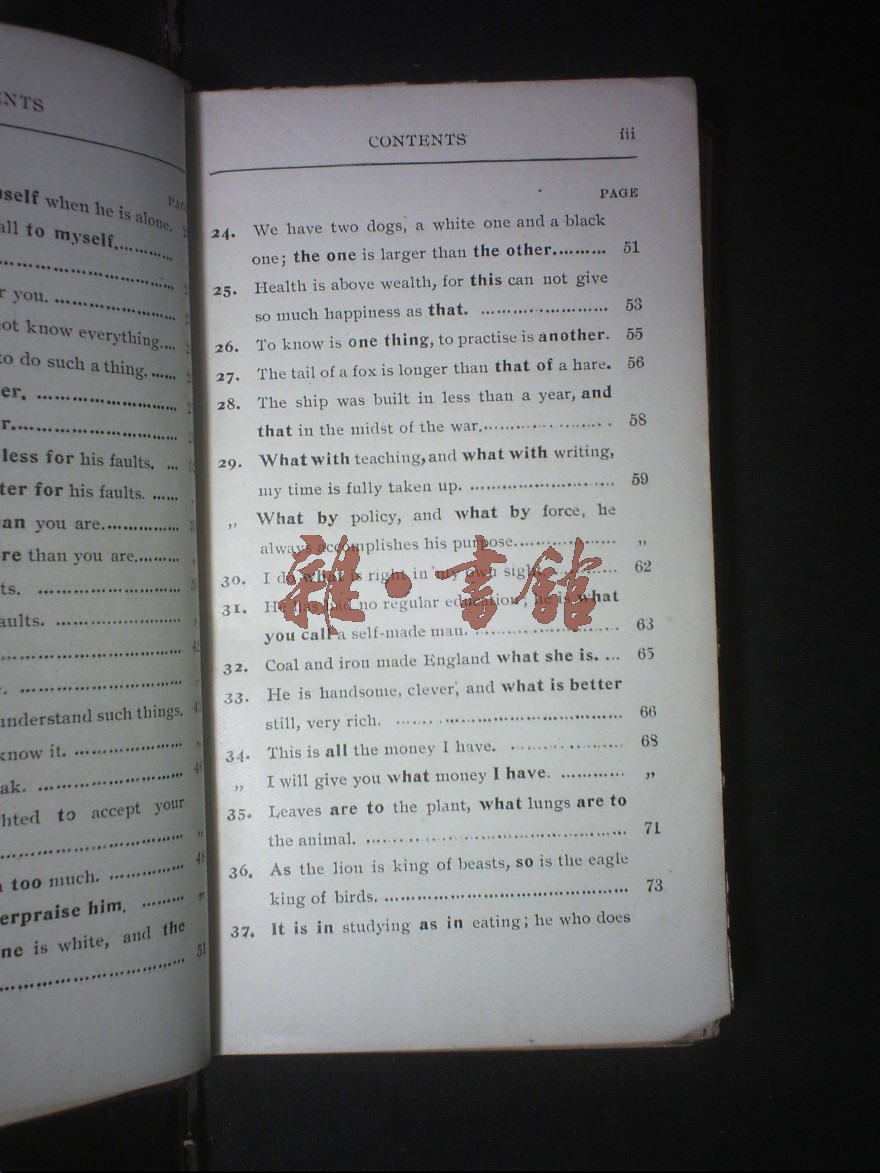 ENTS
PAG
self when he is alone.
all to myself...........
r you. ..................
ot know everything....
to do such a thing. ......
er. ...........................
r............................
less for his faults. ...
ter for his faults. ......
an you are...............
re than you are.........
ts. ........................
aults. .....................
understand such things.
know it. ..................
ak. ........................
hted to accept your
too much. ...............
erpraise him. .........
ne is white, and the
51
CONTENTS iii
PAGE
24. We have two dogs, a white one and a black
one; the one is larger than the other.......... 51
25. Health is above wealth, for this can not give
so much happiness as that. ........................ 53
26. To know is one thing, to practise is another. 55
27. The tail of a fox is longer than that of a hare. 56
28. The ship was built in less than a year, and
that in the midst of the war........................ 58
29. What with teaching, and what with writing,
my time is fully taken up. ........................... 59
„ What by policy, and what by force, he
always accomplishes his purpose.................. „
30. I do what is right in my own sight. ............ 62
31. He has had no regular education; he is what
you call a self-made man. ........................... 63
32. Coal and iron made England what she is. ... 65
33. He is handsome, clever, and what is better
still, very rich. .......................................... 66
34. This is all the money I have. ..................... 68
„ I will give you what money I have. ............ „
35. Leaves are to the plant, what lungs are to
the animal. ................................................ 71
36. As the lion is king of beasts, so is the eagle
king of birds. ............................................. 73
37. It is in studying as in eating; he who does
雜·書館